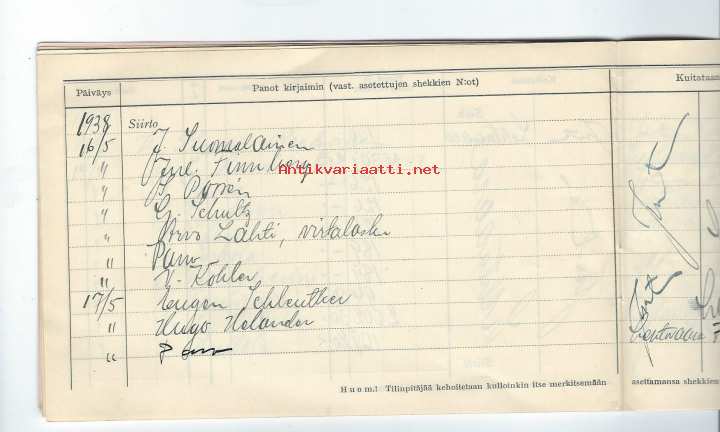 Päiväys Panot kirjaimin (vast. asetettujen shekkien N:ot) Kuitataan
1938 Siirto
16/5 J. Suomalainen
" Finnberg
" B.
" Schultz
" Arvo Lahti, virkalasku
" Pano
" V. Köhler
17/5 Eugen Schleutker
" Hugo Helander
" Pano
Antikvariaatti.net
Huom.! Tilinpitäjää kehoitetaan kulloinkin itse merkitsemään asettamansa shekkien